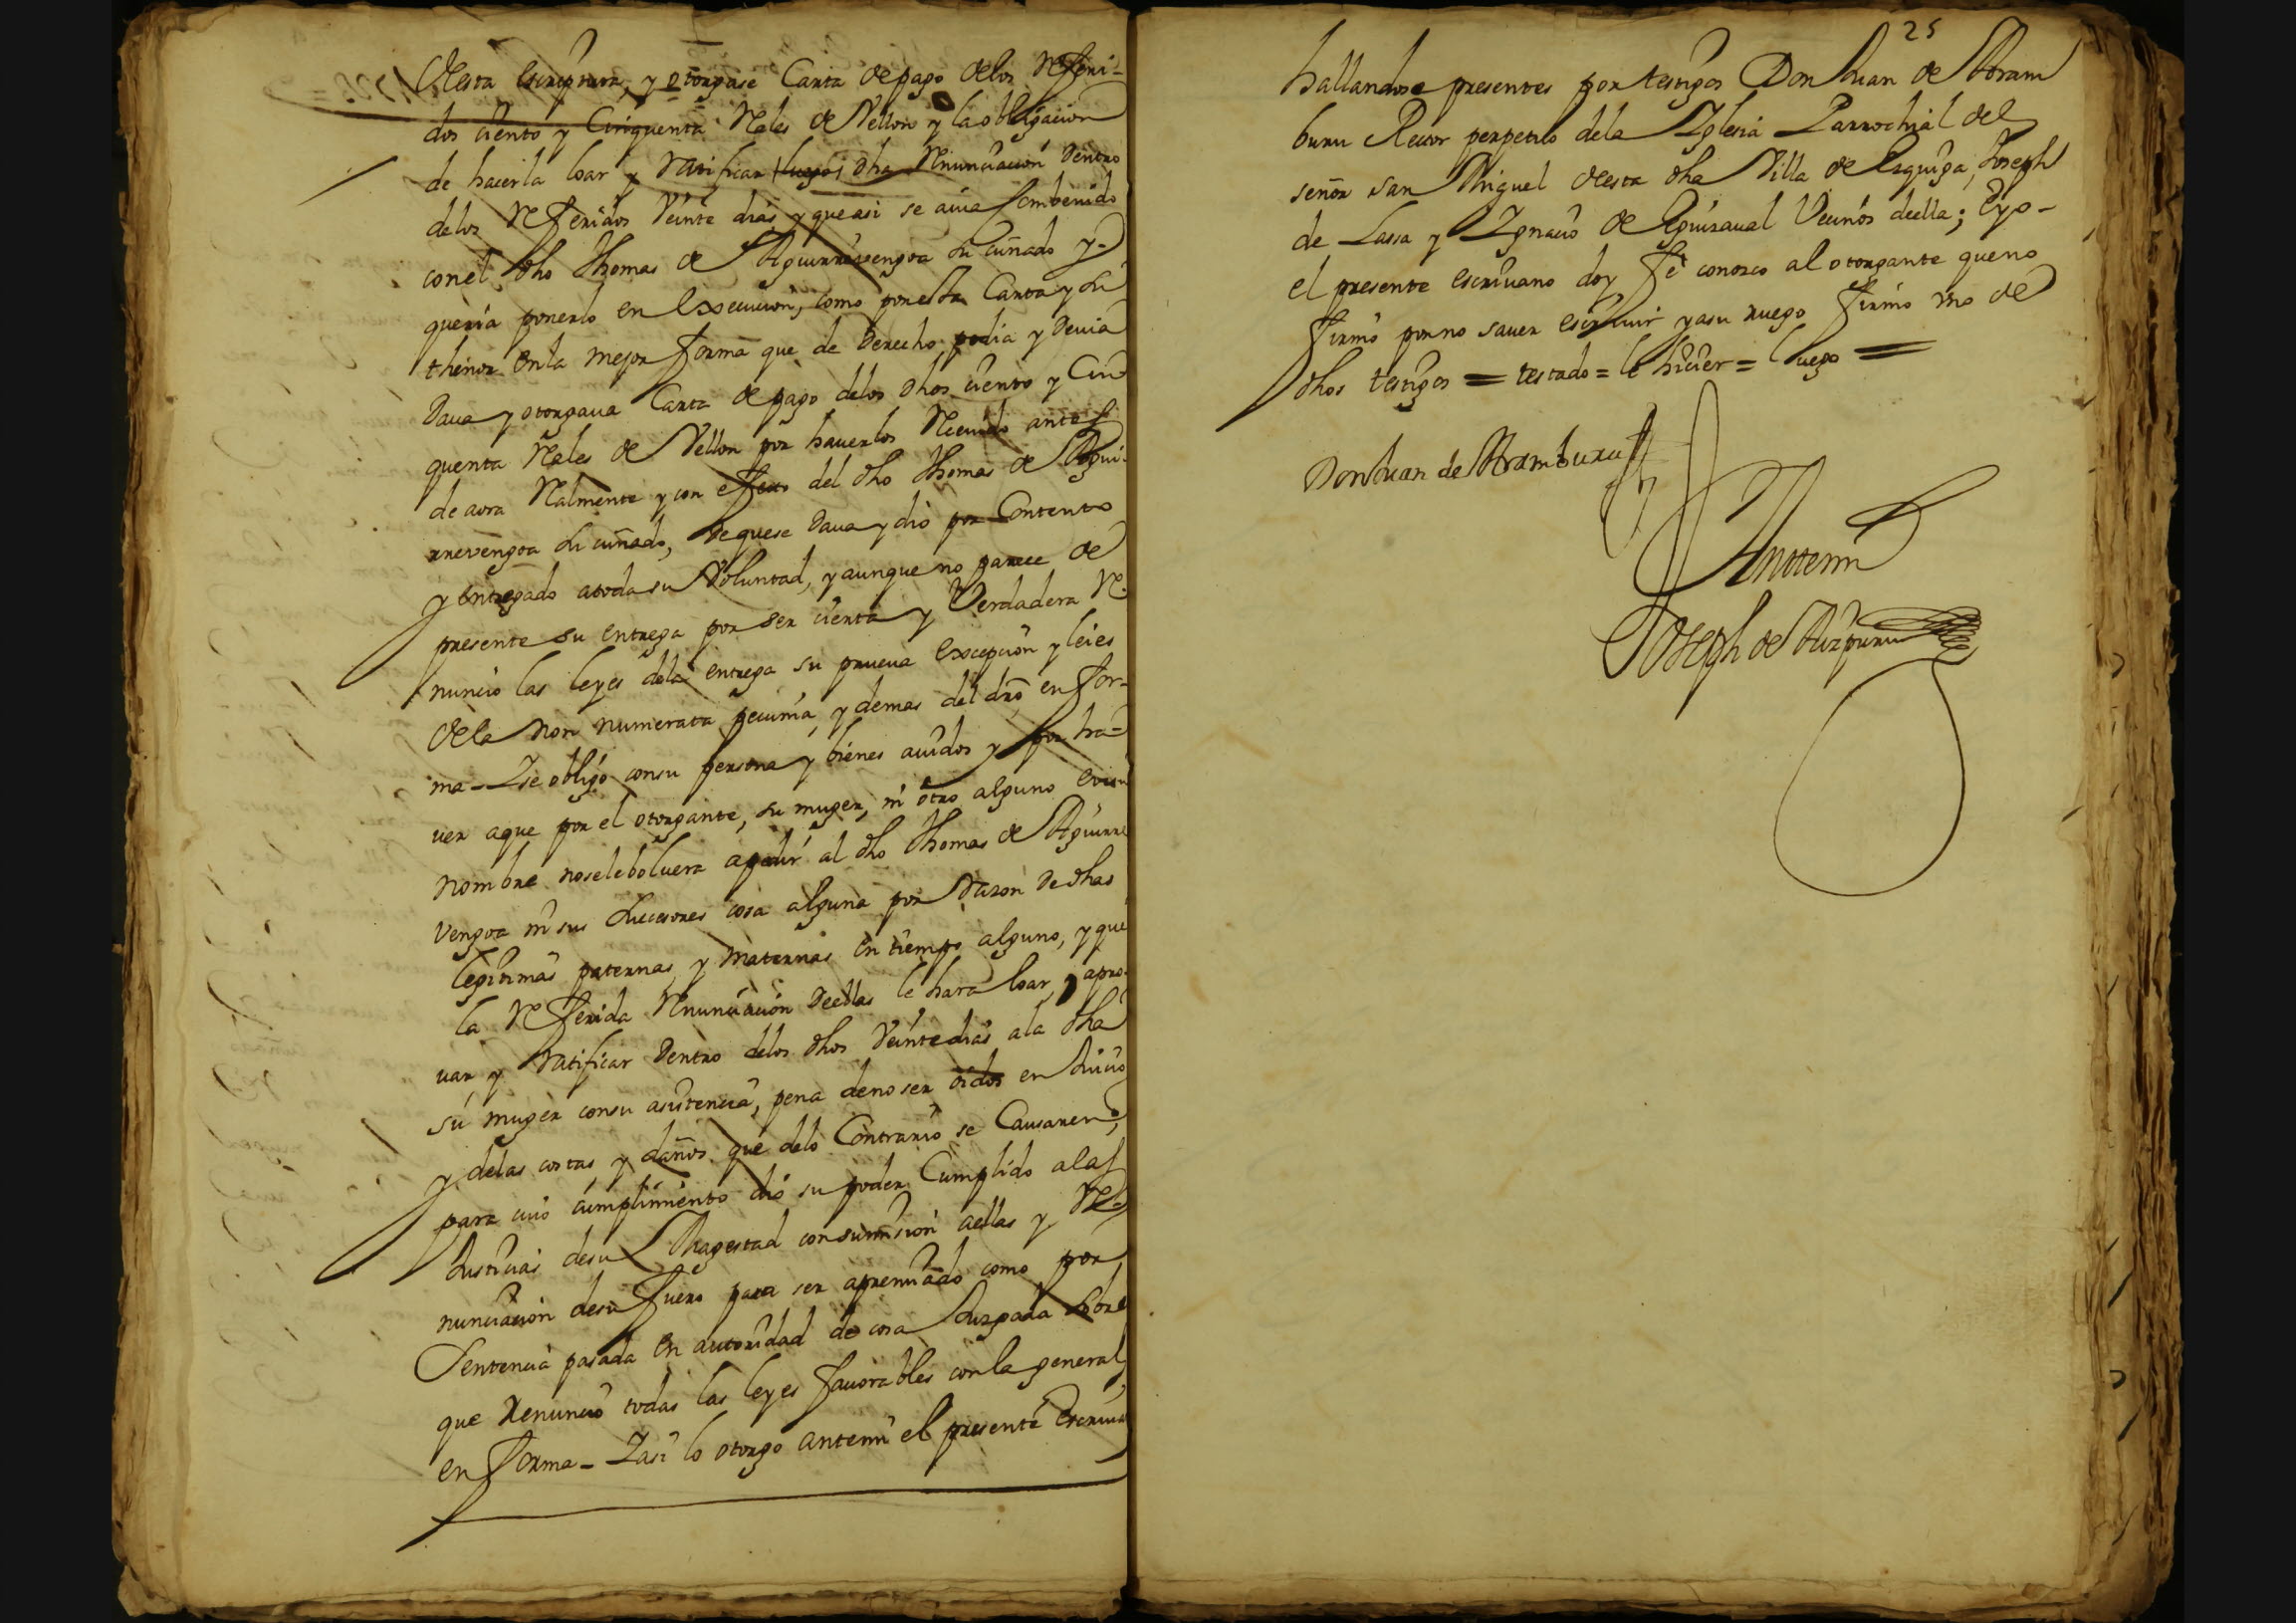 desta escriptura, y otorgase Carta de pago delos Referi-
dos ciento y Cinquenta Rales de Vellon y la obligacion
de hacerla loar y ratificar luego dha Renunciacion Dentro
delos Referidos Veinte dias, y que asi se avia combenido
con el dho Thomas de Aguirrevengoa su cuñado y
queria ponerlo en execucion, como por esta Carta y su
thenor en la mejor forma que de Derecho podia y Devia
Dava y otorgava Carta de pago delos dhos ciento y Cin
quenta Rales de Vellon por haverlos Recivido antes
de aora Ralmente y con efecto del dho Thomas de Agui-
rrevengoa su cuñado, De que se Dava y dió por Contento
y entregado atoda su Voluntad, y aunque no parece de
presente su entrega por ser cierta y Verdadera Re
nunció las leyes dela entrega su prueva excepcion y leies
dela non numerata pecunia, y demas del dro en for-
ma - Y se obligó con su persona y bienes avidos y por ha-
ver a que por el otorgante, su muger, ni otro alguno en su
nombre no se le bolvera a pedir al dho Thomas de Aguirre
vengoa ni sus subcesores cosa alguna por Razon De dhas
legitimas paternas y maternas en tiempo alguno, y que
la Referida Renunciacion De ellas le hará loar, apro-
var, y Ratificar Dentro delos dhos Veinte dias ala dha
su muger con su asistencia, pena de no ser oidos en Juicio
y delas costas, y daños que delo Contrario se Causaren,
para cuio cumplimiento dió su poder Cumplido alas
Justicias de su Magestad con sumision aellas y Re-
nunciacion de su fuero para ser apremiado como por
Sentencia pasada en autoridad de cosa Juzgada sobre
que Renunció todas las leyes favorables con la general
en forma - Y asi lo otorgo ante mi el presente Escriva
25
hallandose presentes por testigos Don Juan de Aram
buru Rector perpetuo dela Yglesia Parrochial del
señor san Miguel desta dha Villa de Ezquiga, Joseph
de Lasa y Ygnacio de Eguizaval Vecinos de ella; E yo
el presente escrivano doy fé conozco al otorgante que no
firmó por no saver escrivir y a su ruego firmó uno de
dhos testigos = testado = le hicier = luego =
Don Juan de Aramburu
Antte mi
Joseph de Aizpuru